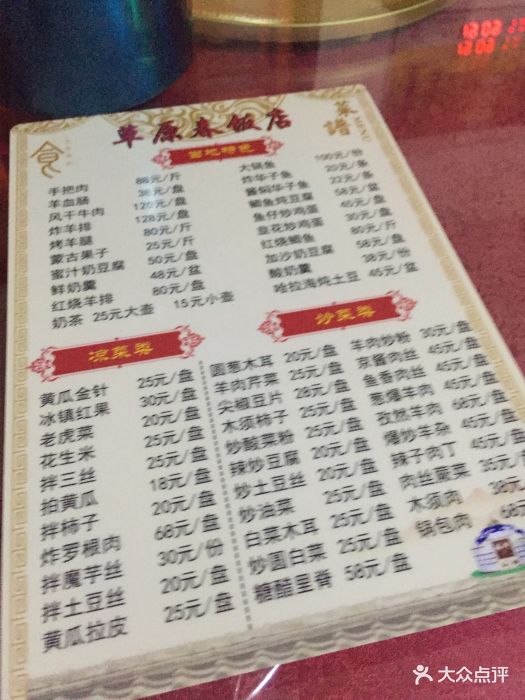 草原春饭店
菜谱
MENU
食
当地特色
手把肉 88元/斤
羊血肠 38元/盘
风干牛肉 120元/盘
炸羊排 128元/盘
烤羊腿 80元/斤
蒙古果子 25元/斤
蜜汁奶豆腐 50元/盘
鲜奶羹 48元/盆
红烧羊排 80元/盘
奶茶 25元大壶 15元小壶
大锅鱼 100元/份
炸华子鱼 20元/条
酱焖华子鱼 22元/条
鲫鱼炖豆腐 58元/盆
鱼仔炒鸡蛋 45元/盘
韭花炒鸡蛋 30元/盘
红烧鲫鱼 80元/斤
加沙奶豆腐 58元/盘
酸奶羹 38元/份
哈拉海炖土豆 45元/盆
凉菜类
黄瓜金针 25元/盘
冰镇红果 30元/盘
老虎菜 20元/盘
花生米 25元/盘
拌三丝 25元/盘
拍黄瓜 18元/盘
拌柿子 20元/盘
炸罗根肉 68元/盘
拌魔芋丝 30元/份
拌土豆丝 20元/盘
黄瓜拉皮 25元/盘
炒菜类
圆葱木耳 20元/盘
羊肉芹菜 25元/盘
尖椒豆片 28元/盘
木须柿子 25元/盘
炒酸菜粉 25元/盘
辣炒豆腐 20元/盘
炒土豆丝 20元/盘
炒油菜 25元/盘
白菜木耳 25元/盘
炒圆白菜 25元/盘
糖醋里脊 58元/盘
羊肉炒粉 30元/盘
京酱肉丝 45元/盘
鱼香肉丝 45元/盘
葱爆羊肉 45元/盘
孜然羊肉 68元/盘
爆炒羊杂 45元/盘
辣子肉丁 45元/盘
肉丝蕨菜 35元/
木须肉 38元
锅包肉 68
大众点评